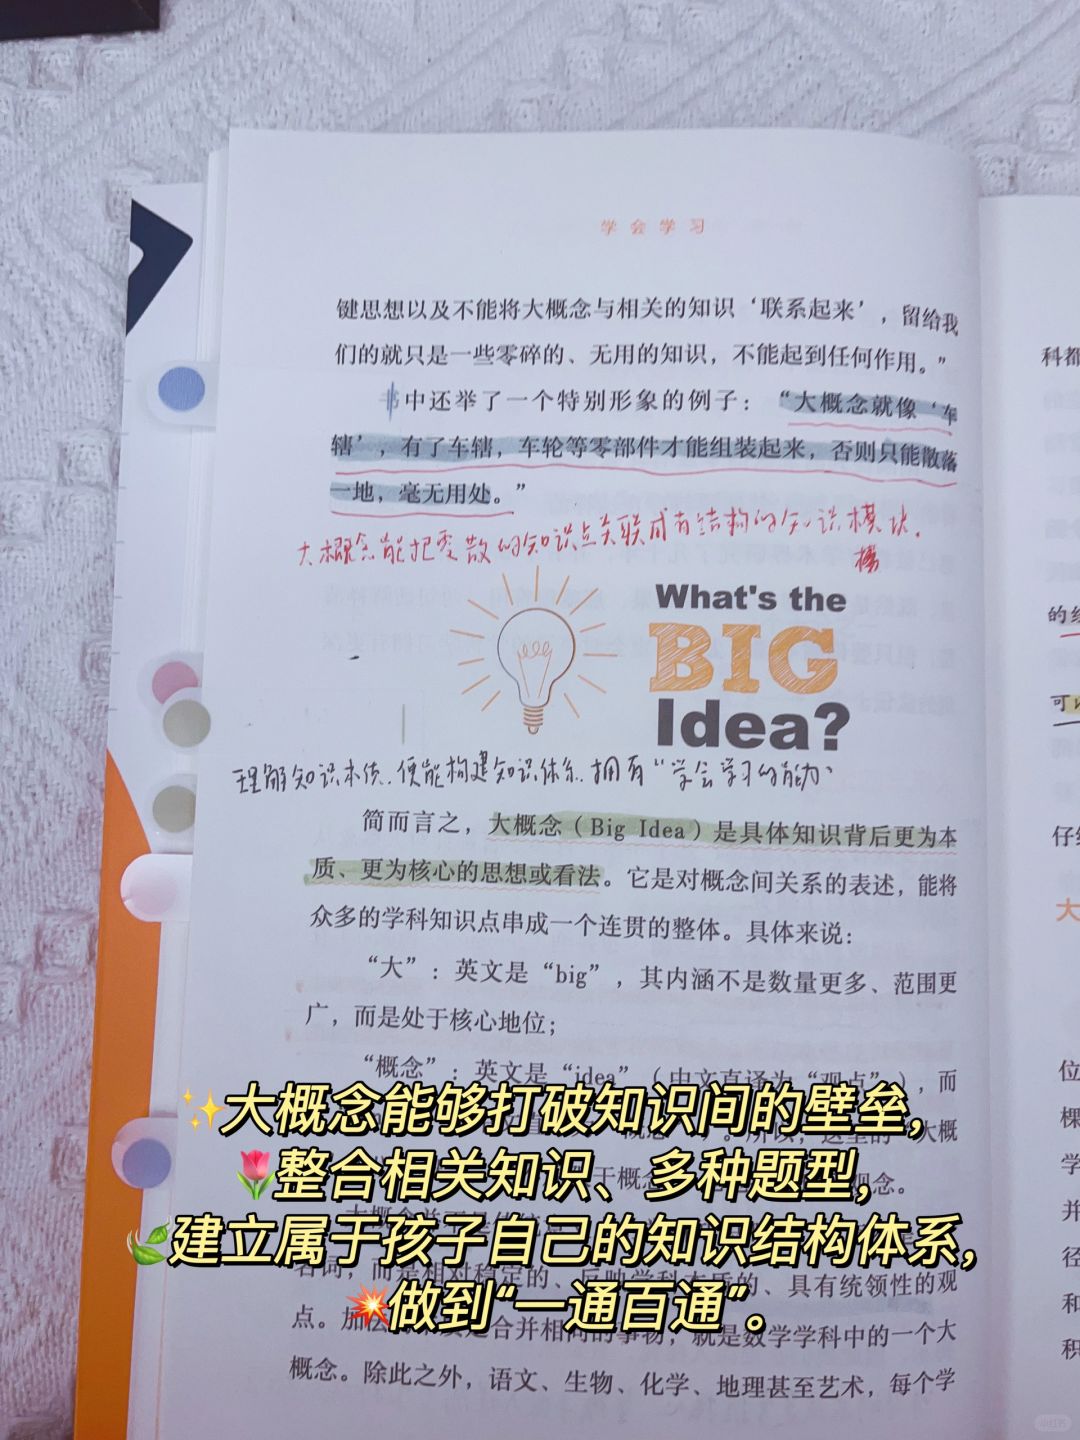 学会学习
键思想以及不能将大概念与相关的知识‘联系起来’，留给我
们的就只是一些零碎的、无用的知识，不能起到任何作用。”
书中还举了一个特别形象的例子：“大概念就像‘车
辖’，有了车辖，车轮等零部件才能组装起来，否则只能散落
一地，毫无用处。”
大概念能把零散的知识点关联成有结构的知识模块。
What's the
BIG
Idea?
理解知识本质，便能构建知识体系，拥有“学会学习的能力”
简而言之，大概念（Big Idea）是具体知识背后更为本
质、更为核心的思想或看法。它是对概念间关系的表述，能将
众多的学科知识点串成一个连贯的整体。具体来说：
“大”：英文是“big”，其内涵不是数量更多、范围更
广，而是处于核心地位；
“概念”：英文是“idea”（中文直译为“观点”），而
✨大概念能够打破知识间的壁垒，
所以，这里的“大概
🌷整合相关知识、多种题型，
于概念
观念。
🌿建立属于孩子自己的知识结构体系，
名词，而是相对稳定的、反映学科本质的、具有统领性的观
💥做到“一通百通”。
点。
合并相同的事物，就是数学学科中的一个大
概念。除此之外，语文、生物、化学、地理甚至艺术，每个学
科都
的经
可以
仔细
大
位
棵
学
并
径
和
积
小红书